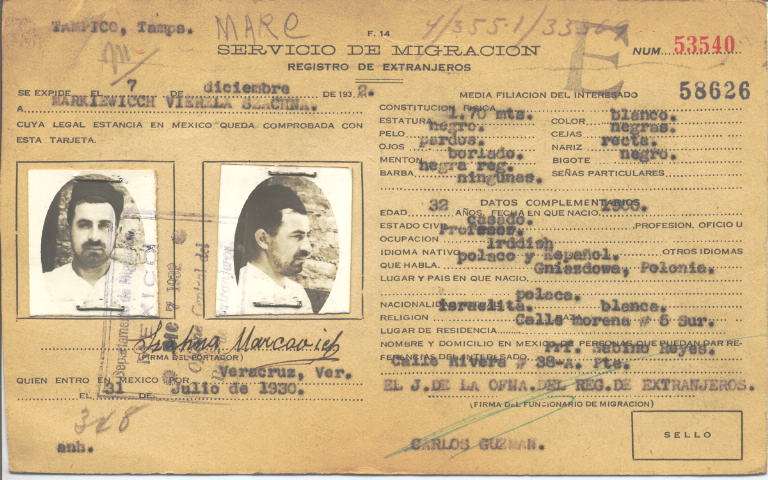 TAMPICO, Tamps.
MARC
F. 14
SERVICIO DE MIGRACION
REGISTRO DE EXTRANJEROS
NUM. 53540
E
58626
SE EXPIDE EL 7 DE diciembre DE 193 2.
A MARKIEWICCH VIERELA SZACHNA.
CUYA LEGAL ESTANCIA EN MEXICO QUEDA COMPROBADA CON
ESTA TARJETA.
(FIRMA DEL PORTADOR)
QUIEN ENTRO EN MEXICO POR Veracruz, Ver.
EL 31 DE Julio de 1930.
328
anh.
MEDIA FILIACION DEL INTERESADO
CONSTITUCION FISICA
ESTATURA 1.70 mts. COLOR blanco.
PELO negro. CEJAS negras.
OJOS pardos. NARIZ recta.
MENTON borlado. BIGOTE negro.
BARBA negra reg. SEÑAS PARTICULARES
ningunas.
DATOS COMPLEMENTARIOS
EDAD 32 AÑOS, FECHA EN QUE NACIO 1900.
ESTADO CIVIL casado. PROFESION, OFICIO U
OCUPACION Profesor.
IDIOMA NATIVO Irddish OTROS IDIOMAS
QUE HABLA. polaco y español.
LUGAR Y PAIS EN QUE NACIO, Gniazdowa, Polonia.
NACIONALIDAD polaca.
RELIGION israelita. blanca.
LUGAR DE RESIDENCIA Calle Morena # 5 Sur.
NOMBRE Y DOMICILIO EN MEXICO DE PERSONAS QUE PUEDAN DAR RE-
FERENCIAS DEL INTERESADO. Prf. Sabino Reyes.
Calle Rivera # 38-A. Pte.
EL J. DE LA OFNA. DEL REG. DE EXTRANJEROS.
(FIRMA DEL FUNCIONARIO DE MIGRACION)
CARLOS GUZMAN.
SELLO